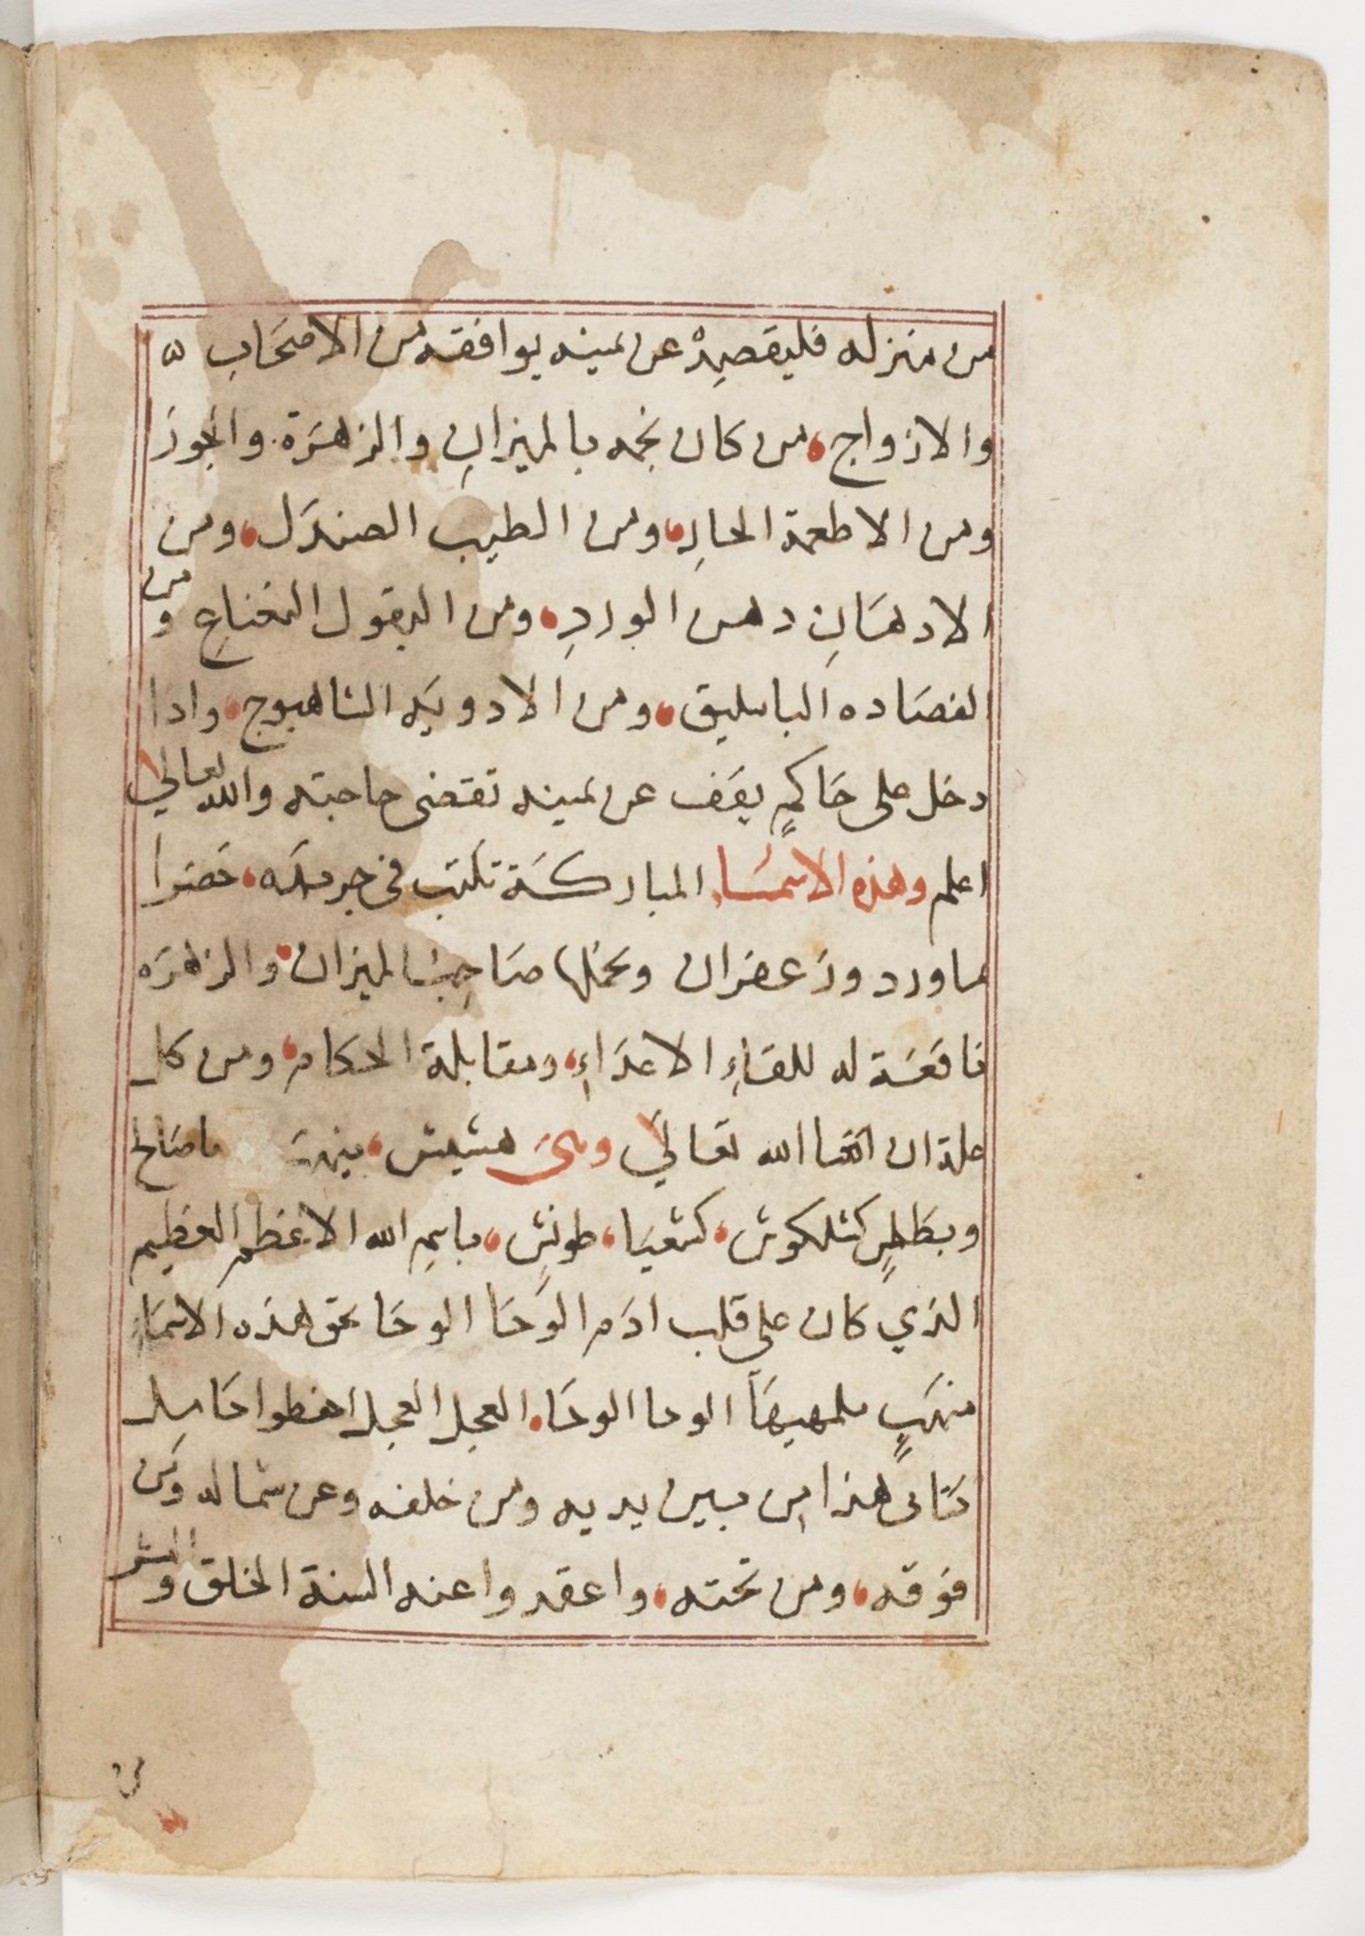 من منزله فليقصد عن يمينه يوافقه من الاصحاب ه
والازواج، من كان نجمه بالميزان والزهرة والجوز
ومن الاطعمة الحار، ومن الطيب الصندل، ومن
الادهان دهن الورد، ومن البقول النعناع ومن
الفصاده الباسليق، ومن الادويه الشاهبوج، واذا
دخل على حاكم يقف عن يمينه تقتضى حاجته والله تعالى
اعلم وهذه الاسماء المباركة تكتب فى خرقه، خضرا
بماورد وزعفران ويحملها صاحب الميزان، والزهره
نافعة له للقاء الاعداء، ومقابلة الحكام، ومن كل
علة ان انشا الله تعالى وهى هشيش، ماصالح
وبططهٍ كشلكوش، كشعيا، طونش، باسم الله الاعظم العظيم
الذي كان على قلب ادم الوحا الوحا بحق هذه الاسماء
الوحا الوحا، العجل العجل احفظوا حامل
كتابى هذا من بين يديه ومن خلفه وعن شماله ومن
فوقه، ومن تحته، واعقدوا عنه السنة الخلق والبشر